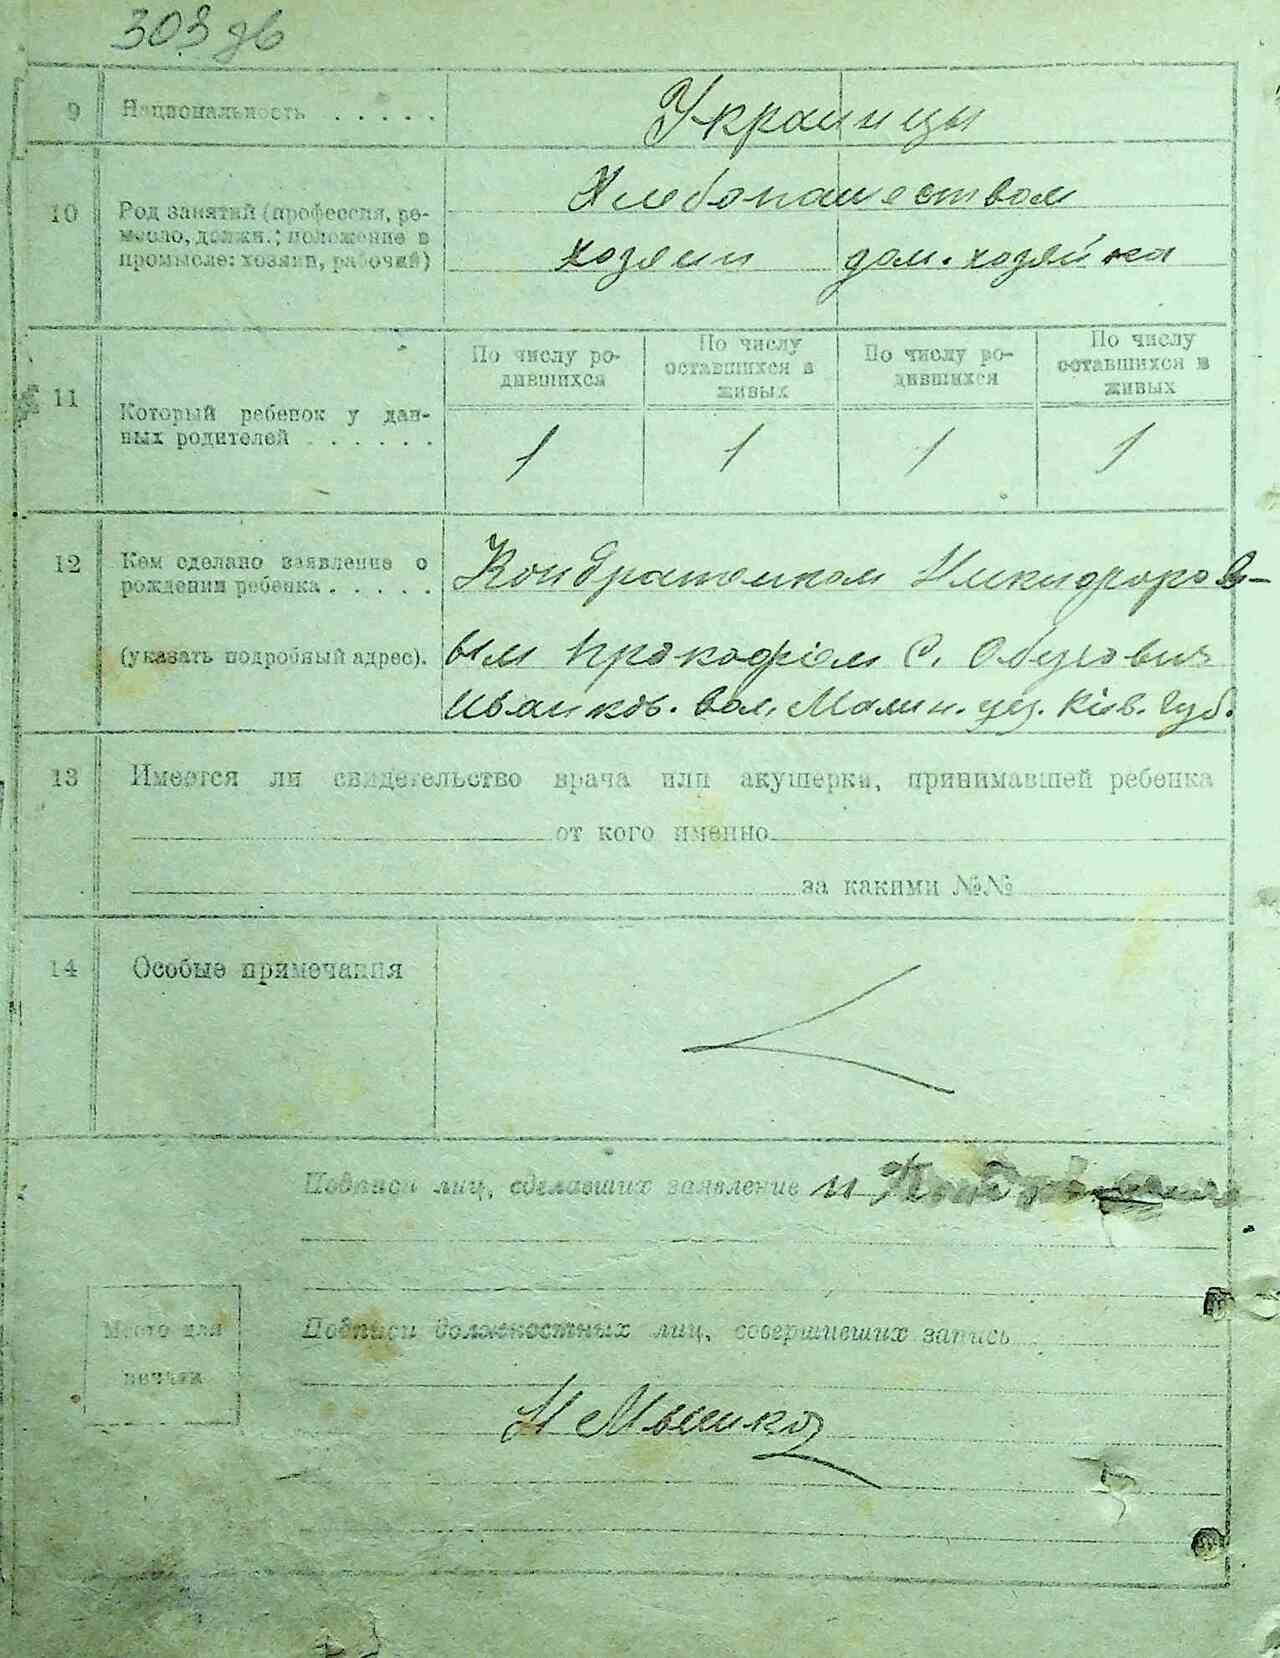 303 зв
9 Национальность . . . . . Украинцы
10 Род занятий (профессия, ре-
месло, должн.; положение в
промысле: хозяин, рабочий)
Хлебопашеством
хозяин дом. хозяйка
11 Который ребенок у дан-
ных родителей . . . . . .
По числу ро-
дившихся
По числу
оставшихся в
живых
По числу ро-
дившихся
По числу
оставшихся в
живых
1 1 1 1
12 Кем сделано заявление о
рождении ребенка . . . . .
(указать подробный адрес).
Кондратенком Никифоров-
ым Прокофіем С. Обуховичъ
Иванков. вол. Малин. уез. Кіев. Губ.
13 Имеется ли свидетельство врача или акушерки, принимавшей ребенка
от кого именно
за какими №№
14 Особые примечания
Подписи лиц, сделавших заявление
Место для
печати
Подписи должностных лиц, совершивших запись